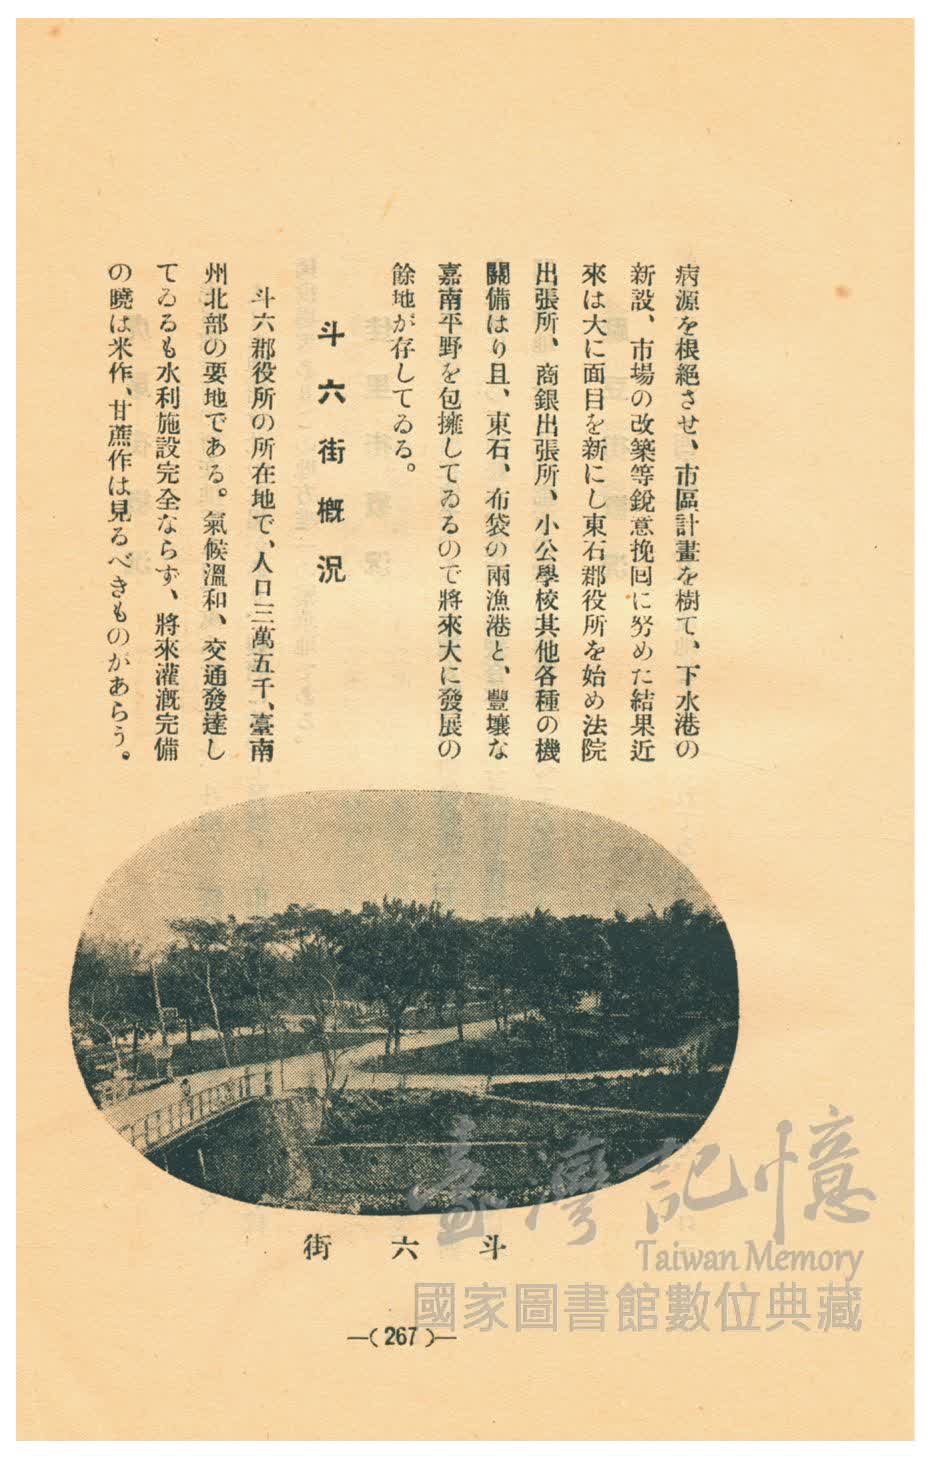 病源を根絶させ、市區計畫を樹て、下水港の
新設、市場の改築等銳意挽回に努めた結果近
來は大に面目を新にし東石郡役所を始め法院
出張所、商銀出張所、小公學校其他各種の機
關備はり且、東石、布袋の兩漁港と、豐壤な
嘉南平野を包擁してゐるので將來大に發展の
餘地が存してゐる。
斗六街概況
斗六郡役所の所在地で、人口三萬五千、臺南
州北部の要地である。氣候溫和、交通發達し
てゐるも水利施設完全ならず、將來灌漑完備
の曉は米作、甘蔗作は見るべきものがあらう。
斗六街
臺灣記憶
Taiwan Memory
國家圖書館數位典藏
—(267)—